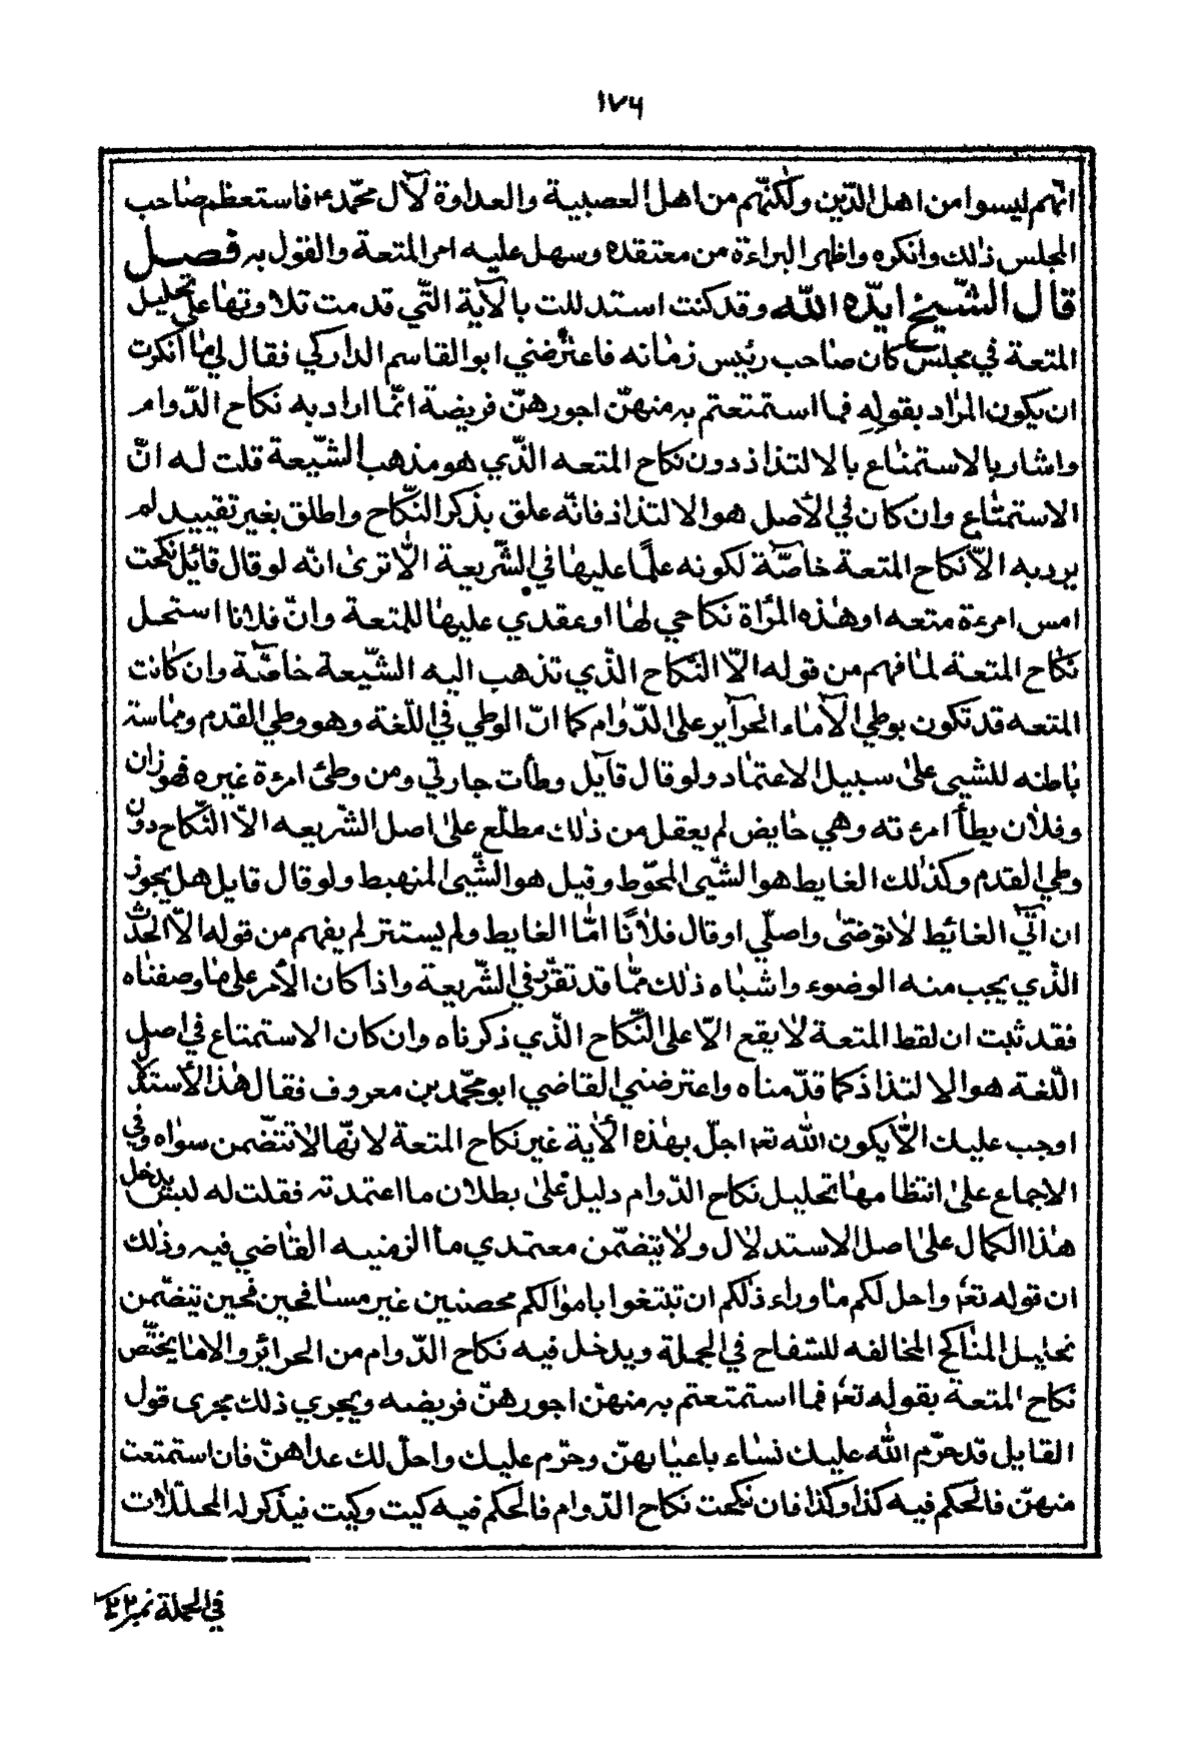 ١٧٦
انّهم ليسوا من اهل الدّين ولٰكنّهم من اهل العصبية والعداوة لآل محمّد ع فاستعظم صٰاحب
المجلس ذٰلك وانكره واظهر البراءة من معتقده وسهل عليه امر المتعة والقول به فصل
قال الشّيخ ايّده اللّه وقد كنت استدللت بالآية التّي قدمت تلاوتهٰا على تحليل
المتعة في مجلس كان صٰاحب رئيس زمٰانه فاعترضني ابو القاسم الداركي فقال لي مٰا انكرت
ان يكون المرٰاد بقوله فما استمتعتم به منهنّ اجورهنّ فريضة انّما اراد به نكاح الدّوام
واشار بالاستمتٰاع بالالتذاذ دون نكاح المتعه الذّي هو مذهب الشّيعة قلت له انّ
الاستمتٰاع وان كان في الأصل هو الالتذاذ فانّه علق بذكر النّكاح واطلق بغير تقييد لم
يرد به الاّ نكاح المتعة خاصّة لكونه علمًا عليهٰا في الشّريعة الاّ ترىٰ انّه لو قال قائل نكحت
امس امرءة متعه او هٰذه المرأة نكاحي لهٰا او عقدي عليهٰا للمتعة وانّ فلانا استحل
نكٰاح المتعة لمٰا فهم من قوله الاّ النّكاح الذّي تذهب اليه الشّيعة خاصّة وان كٰانت
المتعه قد تكون بوطي الآمٰاء الحرآير على الدّوٰام كما انّ الوطي في اللّغة وهو وطي القدم ومماسة
بٰاطنه للشيى علىٰ سبيل الاعتمٰاد ولو قال قآيل وطأت جارتي ومن وطئ امرءة غيره فهو زان
وفلان يطأ امرءته وهي حٰايض لم يعقل من ذٰلك مطلّع علىٰ اصل الشّريعه الاّ النّكاح دون
وطي القدم وكذٰلك الغايط هو الشّيى المحوّط وقيل هو الشّيى المنهبط ولو قال قايل هل يجوز
ان آتي الغائيط لاٰ توضىّٰ واصلّي او قال فلاٰنًا امّٰا الغايط ولم يستتر لم يفهم من قوله الاّ الحدث
الذّي يجب منه الوضوء واشبٰاه ذٰلك ممّا قد تقرّر في الشّريعة واذا كان الأمر على مٰا وصفنٰاه
فقد ثبت ان لقط المتعة لاٰ يقع الاّ على النّكاح الذّي ذكرناه وان كان الاستمتاع في اصل
اللّغة هو الالتذاذ كما قدّمناه واعترضني القاضي ابو محمّد بن معروف فقال هٰذا الأستدلال
اوجب عليك الاّ يكون اللّه تع اجلّ بهٰذه الأية غير نكاح المتعة لانّهٰا لاٰ تتضّمن سوٰاه وفي
الاجماع علىٰ انتظامهٰا تحليل نكاح الدّوام دليل علىٰ بطلان ما اعتمدته فقلت له ليس يدخل
هٰذا الكمال علىٰ اصل الاستدلاٰل ولاٰ يتضّمن معتمدي مٰا الزمنيه القٰاضي فيه وذٰلك
ان قوله تع واحل لكم مٰا ورٰاء ذٰلكم ان تبتغوا بامواٰلكم محصنين غير مسٰافحين فحين يتضّمن
تحليل المنٰاكح المخٰالفه للسّفاح في الجملة ويدخل فيه نكاح الدّوام من الحرائر والامٰا يختّص
نكاح المتعة بقوله تع فما استمتعتم به منهنّ اجورهنّ فريضه ويجري ذٰلك مجرى قول
القايل قد حرّم اللّٰه عليك نسٰاء باعيٰانهنّ وحرّم عليك واحلّ لك عداهنّ فان استمتعت
منهنّ فالحكم فيه كذا وكذا فان نكحت نكاح الدّوام فالحكم فيه كيت وكيت فيذكر له المحلّلاٰت
في الجملة نمبر ٢٢